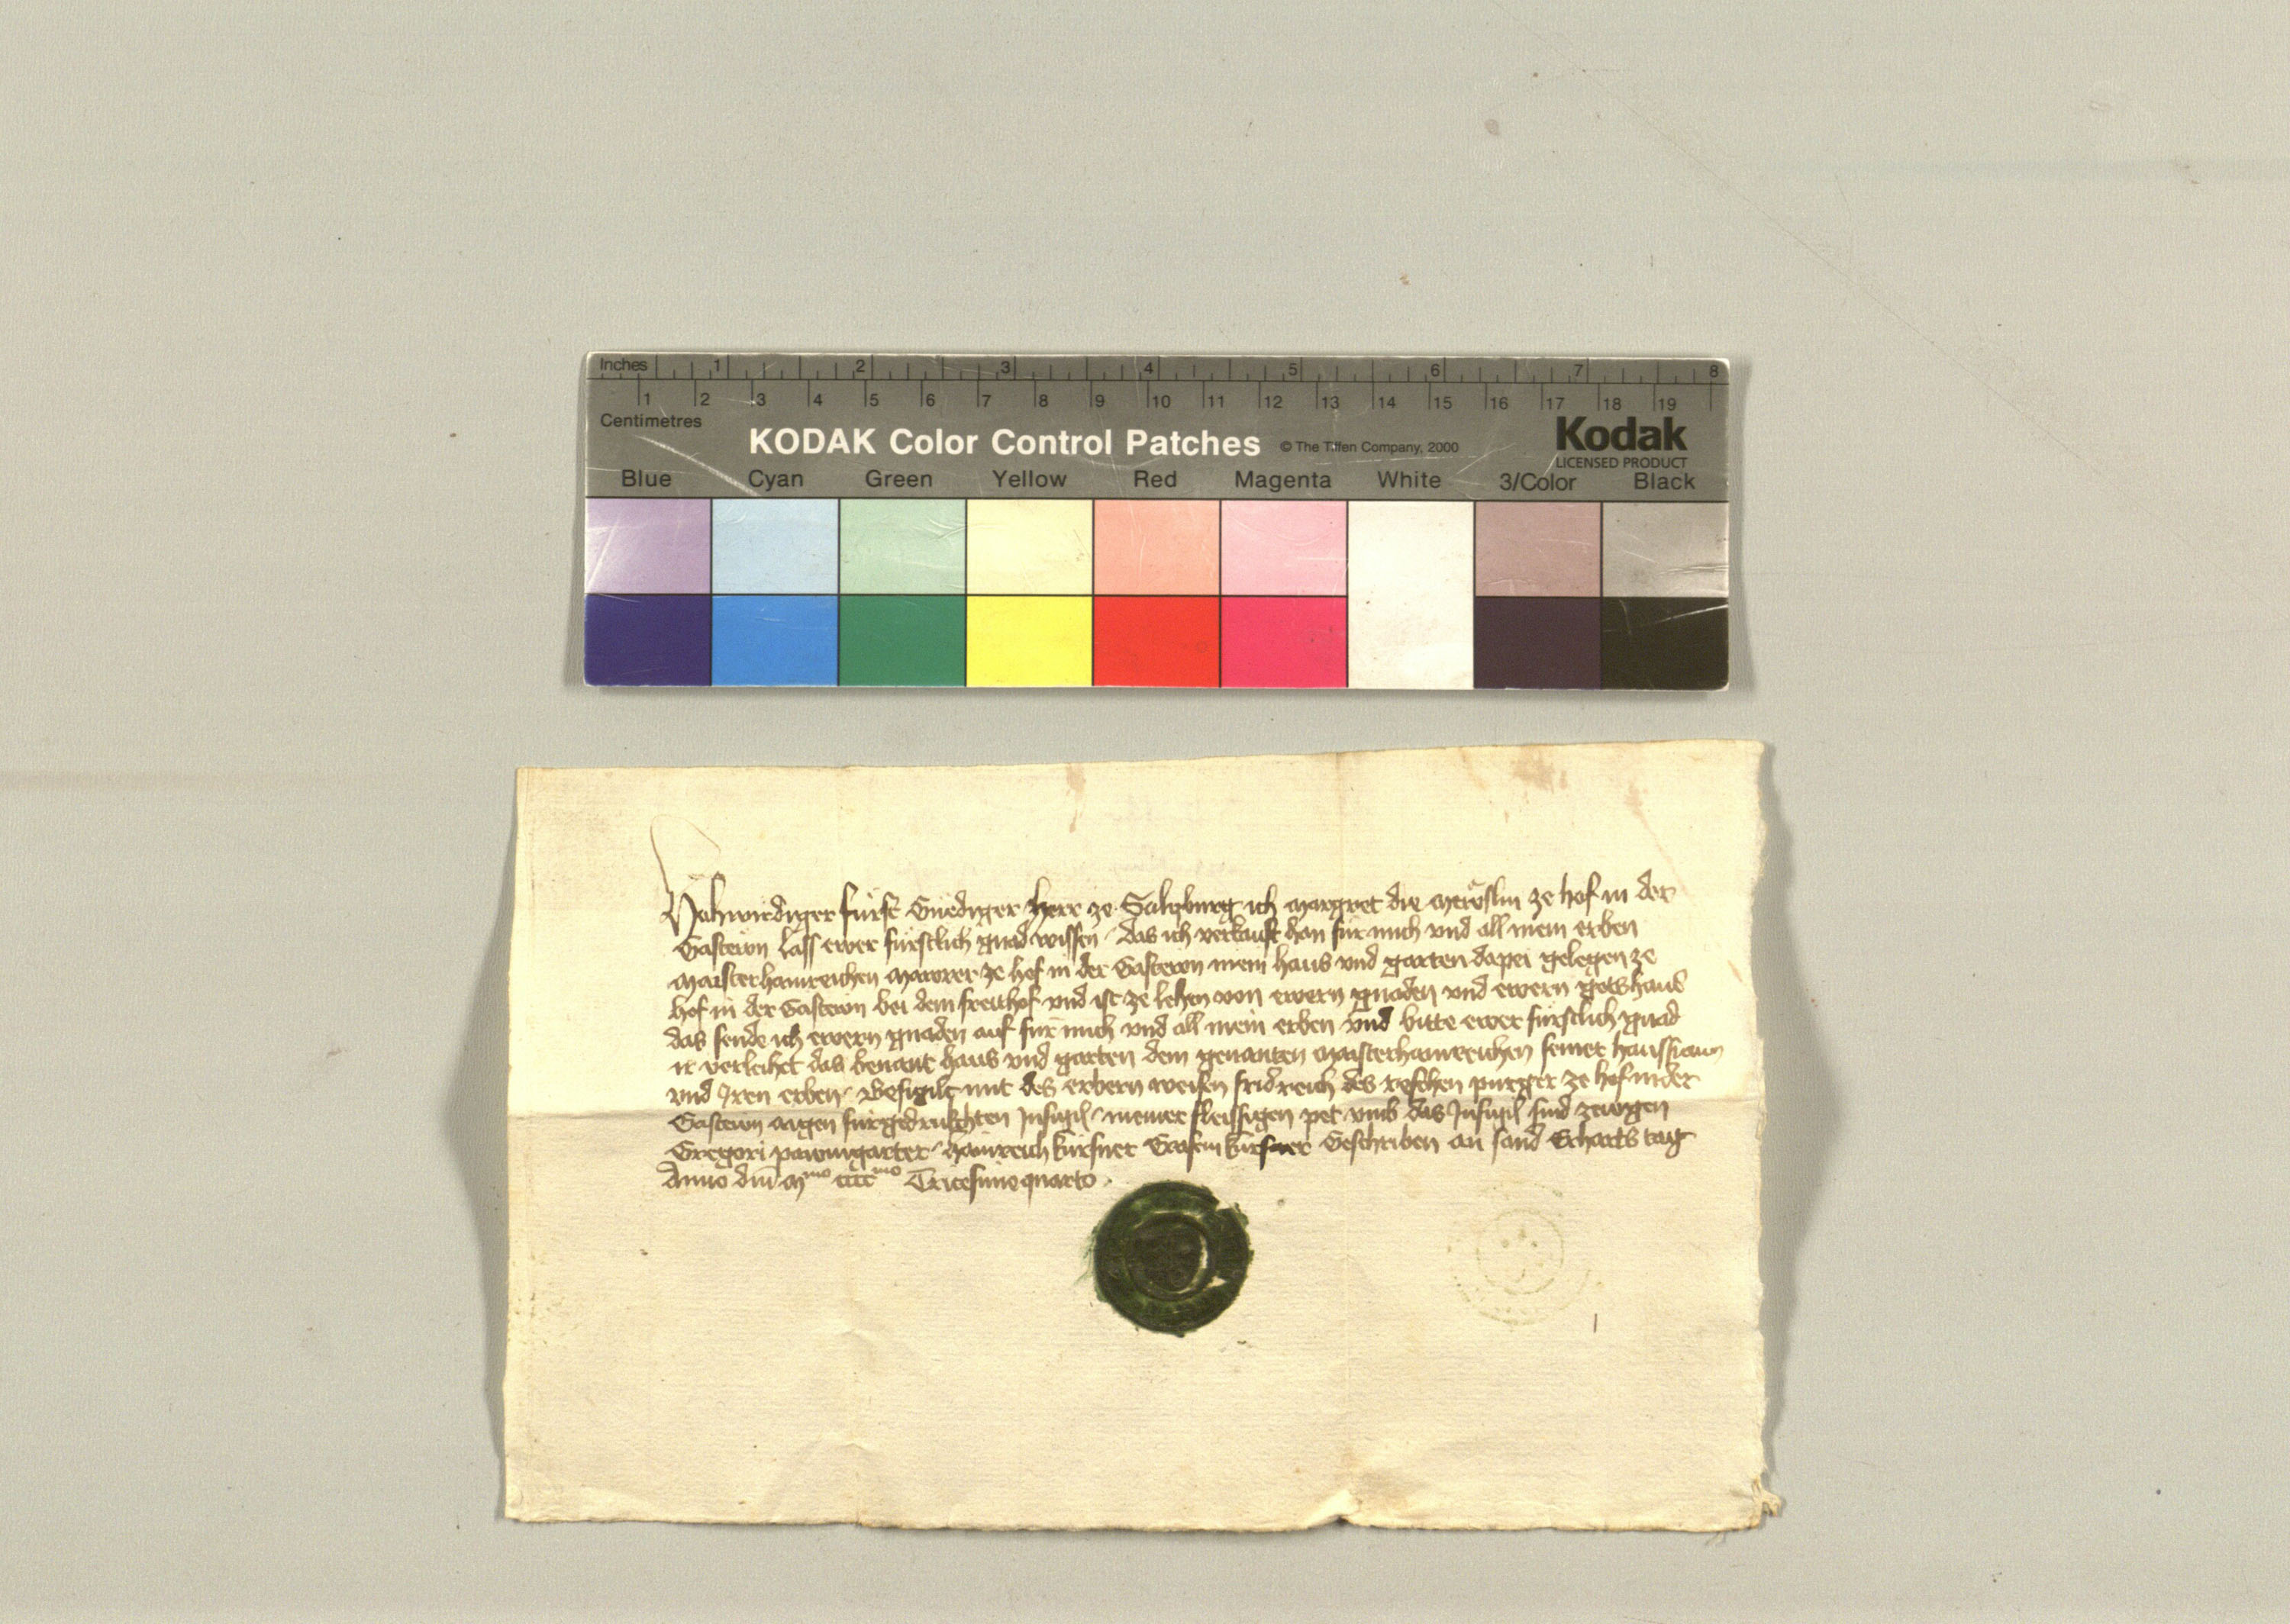 Inches 1 2 3 4 5 6 7 8
1 2 3 4 5 6 7 8 9 10 11 12 13 14 15 16 17 18 19
Centimetres
KODAK Color Control Patches © The Tiffen Company, 2000 Kodak
LICENSED PRODUCT
Blue Cyan Green Yellow Red Magenta White 3/Color Black
Hohwirdiger fürst Gnediger herr ze Salzburg ich margret die ze hof in der
Gastewn lass ewer fürstlich gnad wissen das ich verkauft han für mich vnd all mein erben
maister hainreichen mawrer ze hof in der Gastewn mein haus vnd garten dapei gelegen ze
hof in der Gastewn bei dem freithof vnd ist ze lehen von ewern gnaden vnd ewern gotshaus
das sende ich ewern gnaden auf für mich vnd all mein erben vnd bitte ewer fürstlich gnad
ir verleihet das benant haus vnd garten dem genanten maister hainreichen seiner hausfrawn
vnd Iren erben Besigilt mit des erbern weisen fridreich des reschen purger ze hof in der
Gastewn aigen fürgedrukchten Insigil meiner fleissigen pet vmb das Insigil sind zewgen
Gregori pawmgarter hainreich kürsner kürsner Geschriben an sand Erharts tag
Anno dni Mmo ccccmo Tricesimoquarto